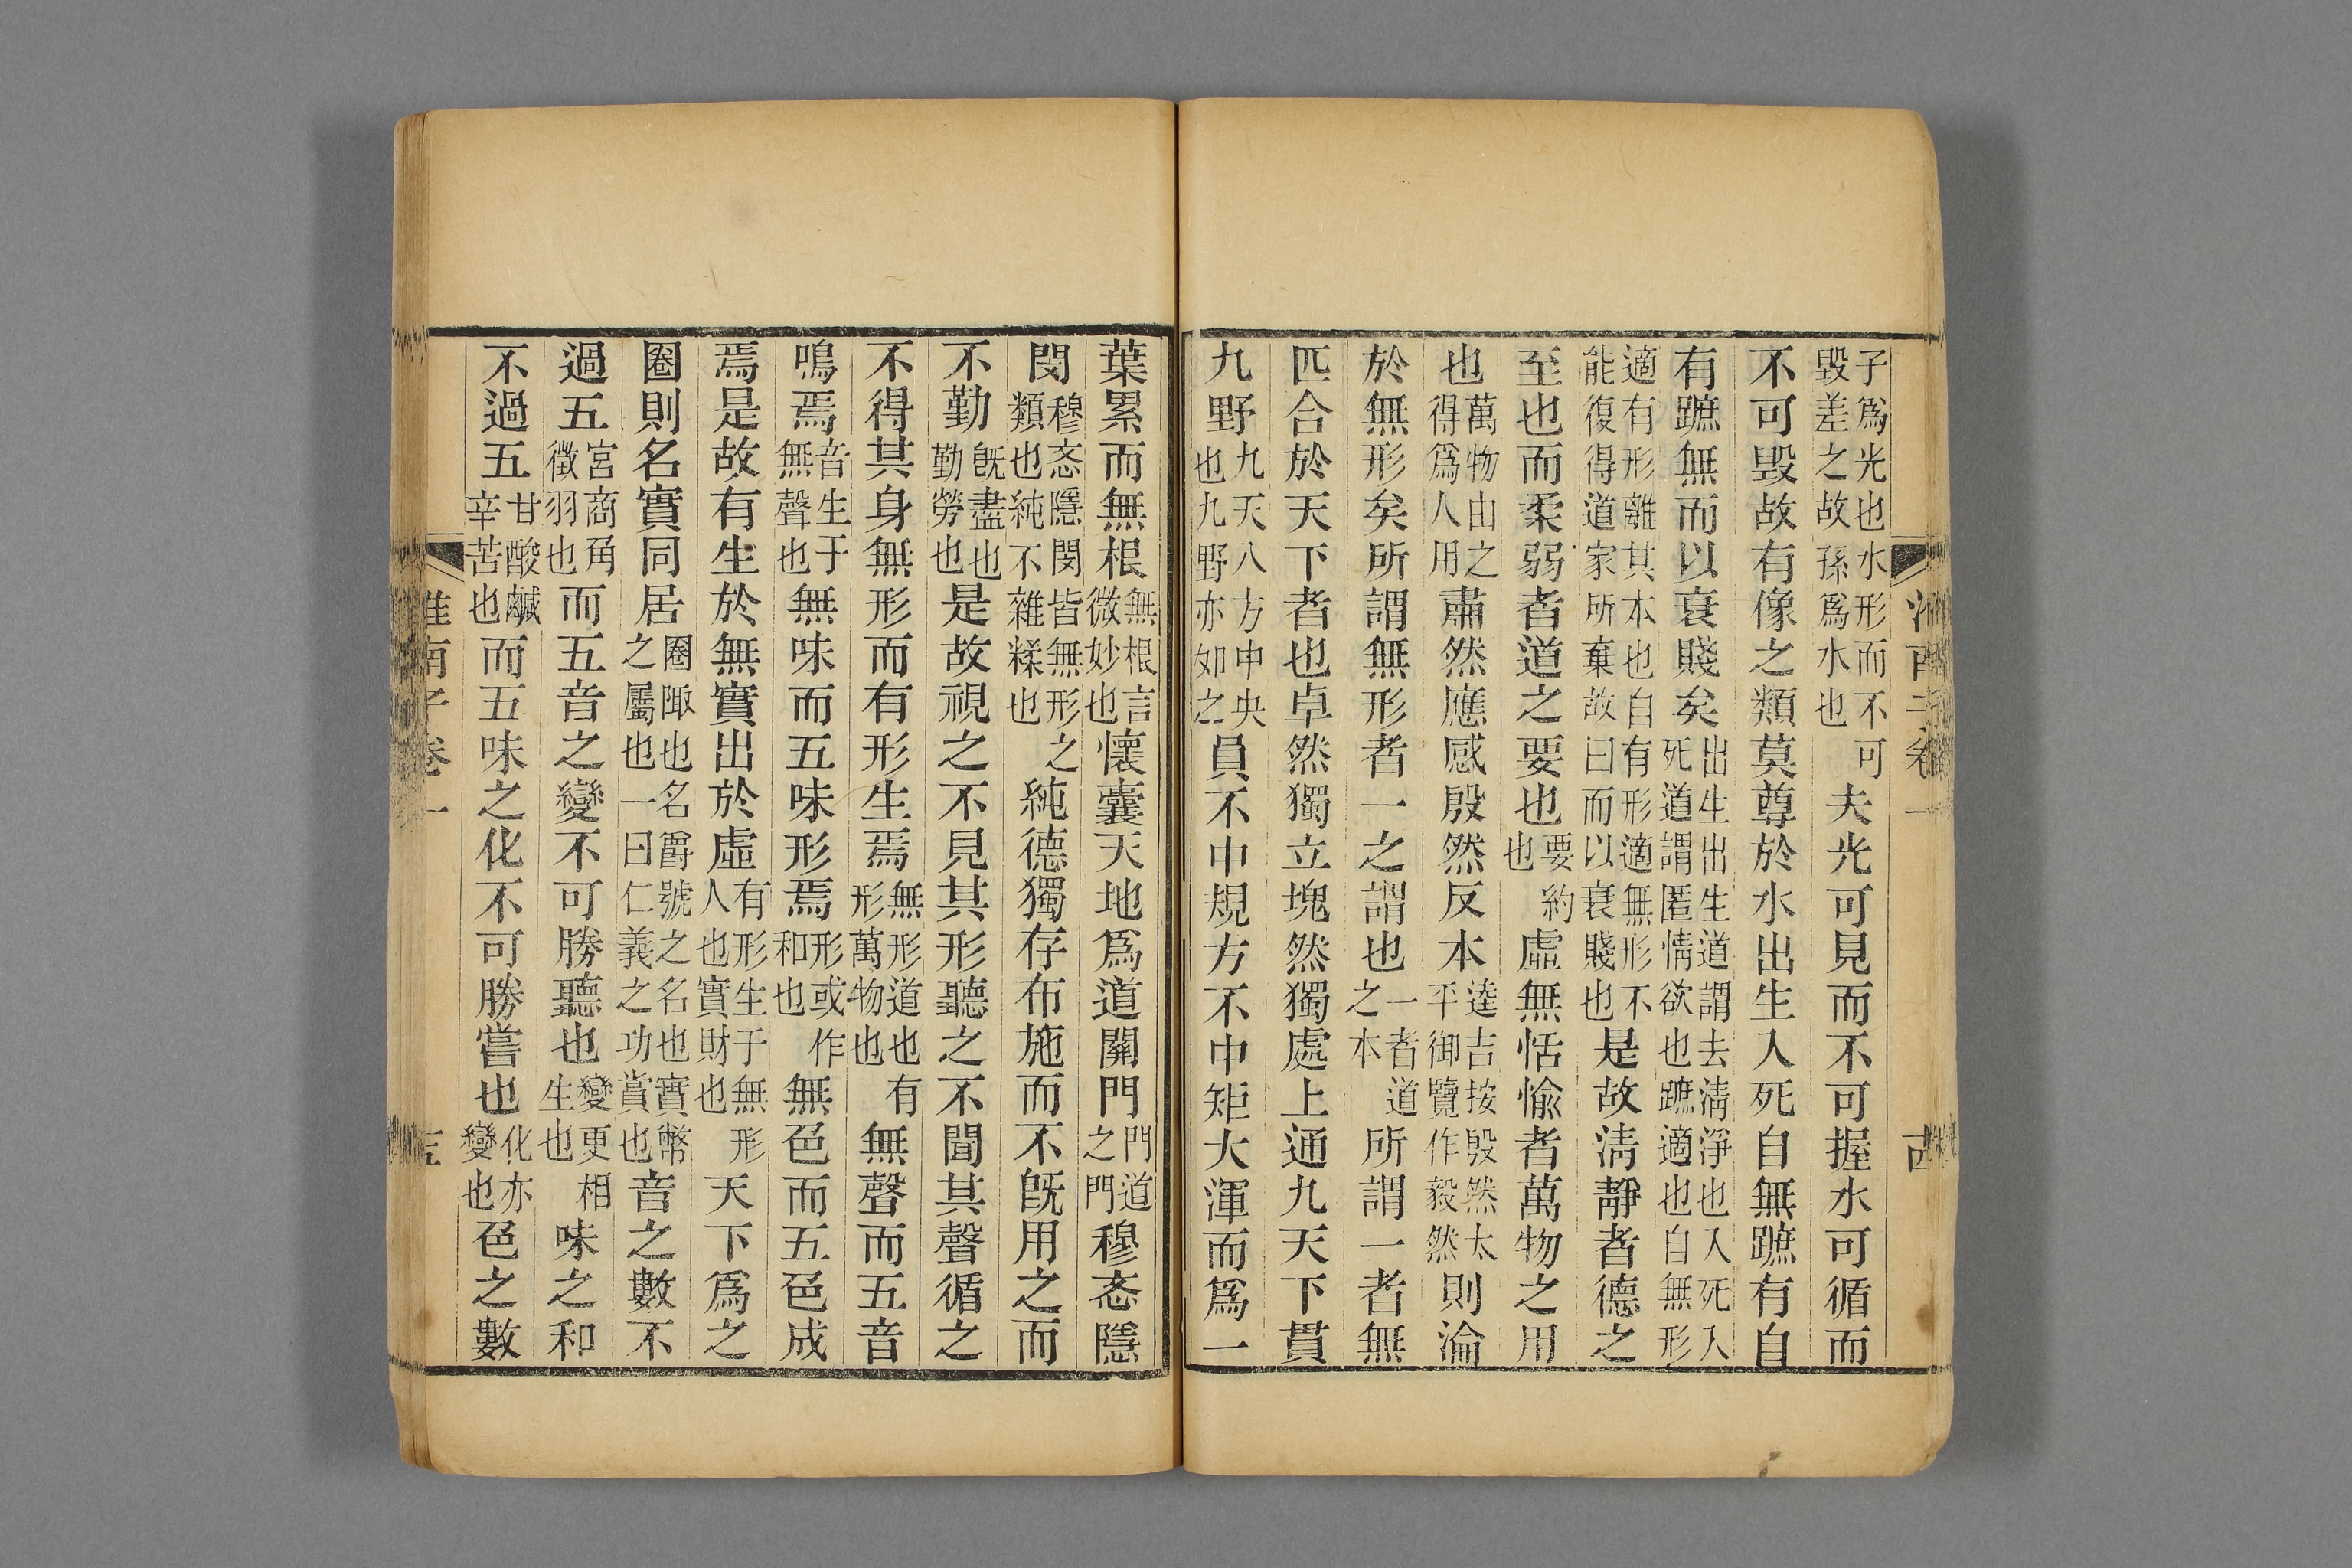 子爲光也水形而不可毀差之故孫爲水也夫光可見而不可握水可循而
不可毀故有像之類莫尊於水出生入死自無蹠有自
有蹠無而以衰賤矣出生出生道謂去淸淨也入死入死道謂匿情欲也蹠適也自無形
適有形離其本也自有形適無形不能復得道家所棄故曰而以衰賤也是故淸靜者德之
至也而柔弱者道之要也要約也虛無恬愉者萬物之用
也萬物由之得爲人用肅然應感殷然反本逵吉按殷然太平御覽作毅然則淪
於無形矣所謂無形者一之謂也一者道之本所謂一者無
匹合於天下者也卓然獨立塊然獨處上通九天下貫
九野九天八方中央也九野亦如之員不中規方不中矩大渾而爲一
葉累而無根無根言微妙也懷囊天地爲道關門門道之門穆忞隱
閔穆忞隱閔皆無形之類也純不雜糅也純德獨存布施而不旣用之而
不勤旣盡也勤勞也是故視之不見其形聽之不聞其聲循之
不得其身無形而有形生焉無形道也有形萬物也無聲而五音
鳴焉音生于無聲也無味而五味形焉形或作和也無色而五色成
焉是故有生於無實出於虛有形生于無形人也實財也天下爲之
圈則名實同居圈陬也名爵號之名也實幣之屬也一曰仁義之功賞也音之數不
過五宮商角徵羽也而五音之變不可勝聽也變更相生也味之和
不過五甘酸鹹辛苦也而五味之化不可勝嘗也化亦變也色之數
淮南子卷一